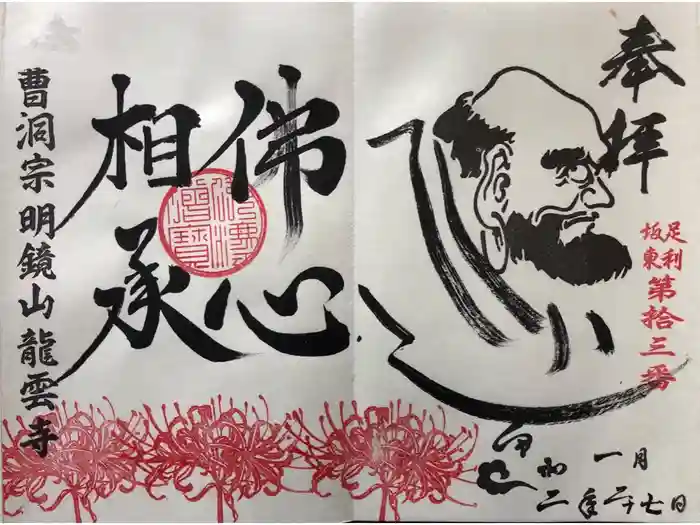 奉拝
足利
坂東
第拾三番
一月二十七日
令和二年
佛心
相承
曹洞宗明鏡山龍雲寺